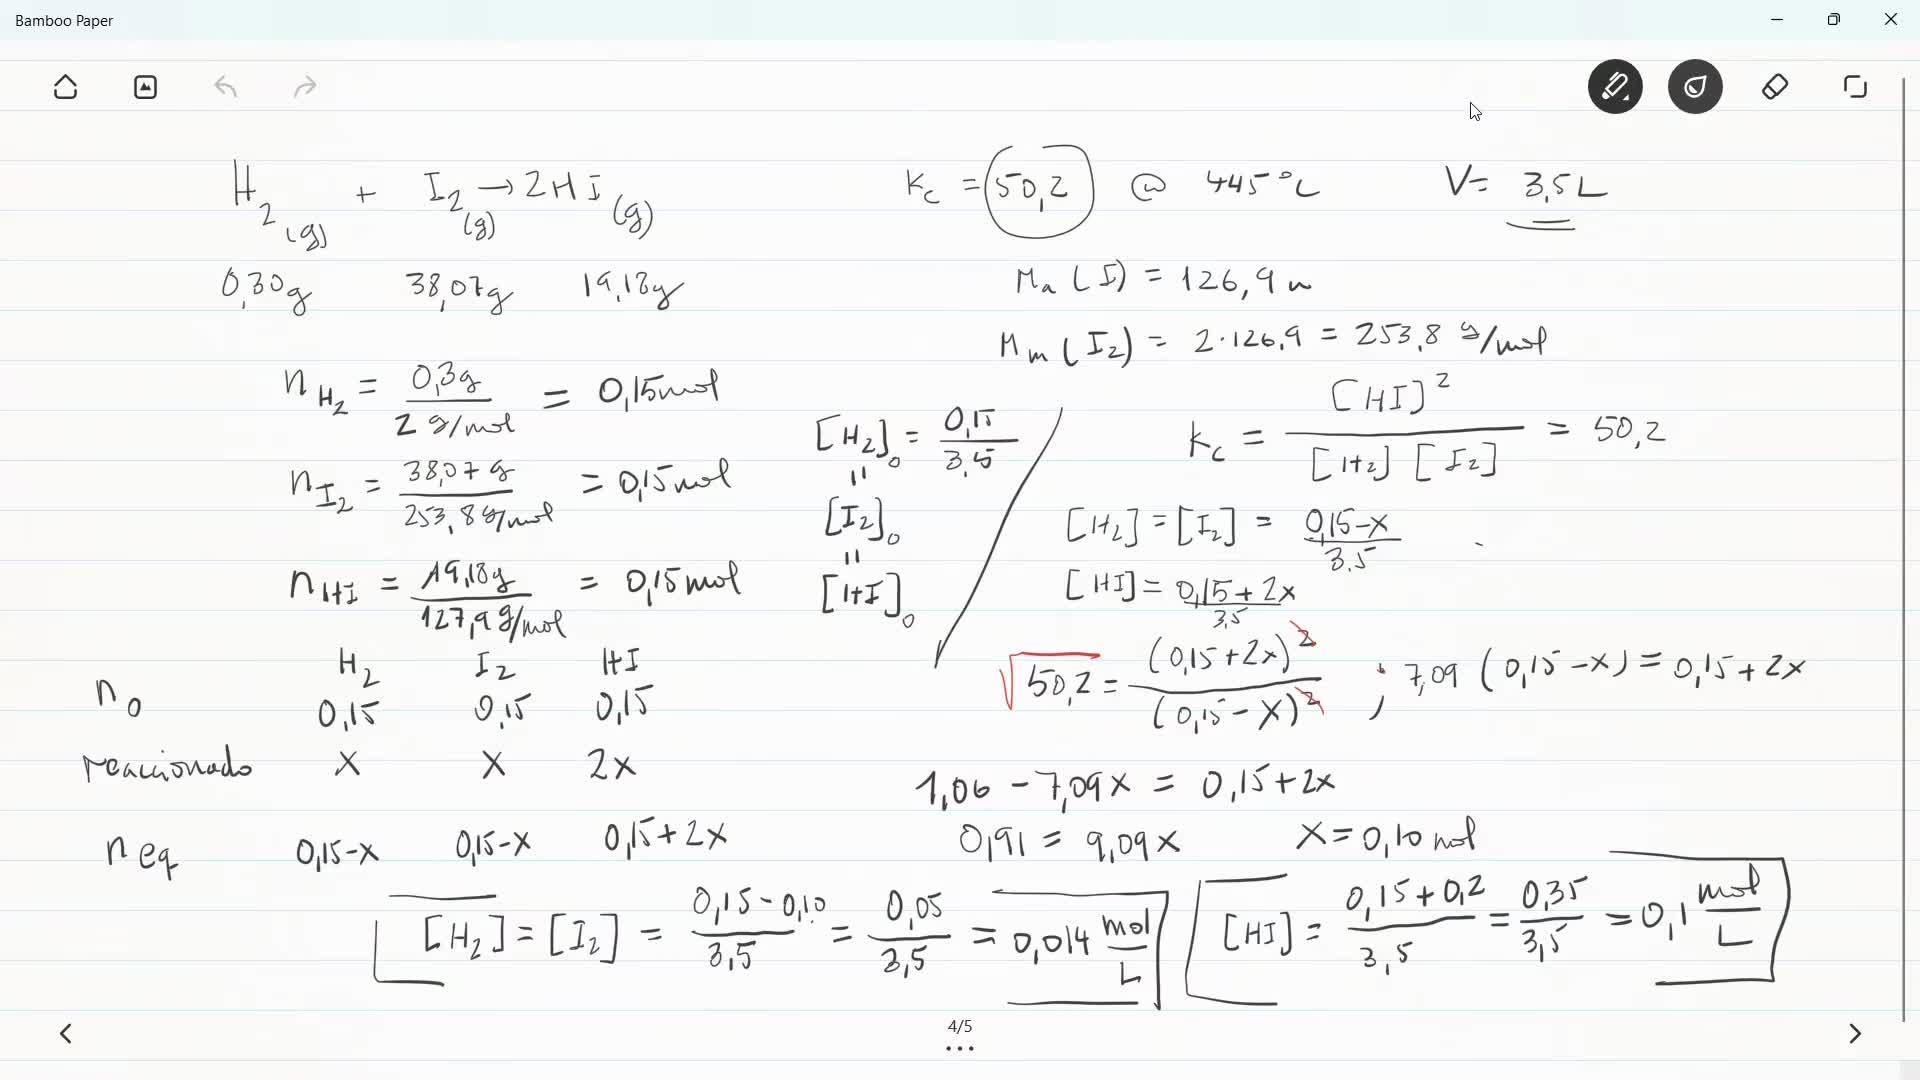 Bamboo Paper
H₂(g) + I₂(g) → 2HI(g)
0,30g 38,07g 19,18g
Kc = 50,2 @ 445°C
V= 3,5L
Ma (I) = 126,9 u
Mm (I₂) = 2·126,9 = 253,8 g/mol
n H₂ = 0,3g / 2 g/mol = 0,15mol
n I₂ = 38,07 g / 253,8 g/mol = 0,15mol
n HI = 19,18g / 127,9 g/mol = 0,15mol
[H₂]₀ = 0,15 / 3,5
=
[I₂]₀
=
[HI]₀
Kc = [HI]² / [H₂] [I₂] = 50,2
[H₂] = [I₂] = 0,15-x / 3.5
[HI] = 0,15 + 2x / 3,5
√50,2 = (0,15+2x)² / (0,15-x)² ; 7,09 (0,15-x) = 0,15 + 2x
H₂ I₂ HI
n₀ 0,15 0,15 0,15
reaccionado x x 2x
n eq 0,15-x 0,15-x 0,15+2x
1,06 - 7,09x = 0,15+2x
0,91 = 9,09x x = 0,10 mol
[H₂] = [I₂] = 0,15-0,10 / 3,5 = 0,05 / 3,5 = 0,014 mol / L
[HI] = 0,15+0,2 / 3,5 = 0,35 / 3,5 = 0,1 mol / L
4/5